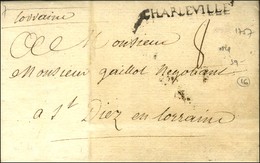 Lorraine
CHARLEVILLE
1757
8
A Monsieur
Monsieur gaillot Negotiant
a St Diez en lorraine
16